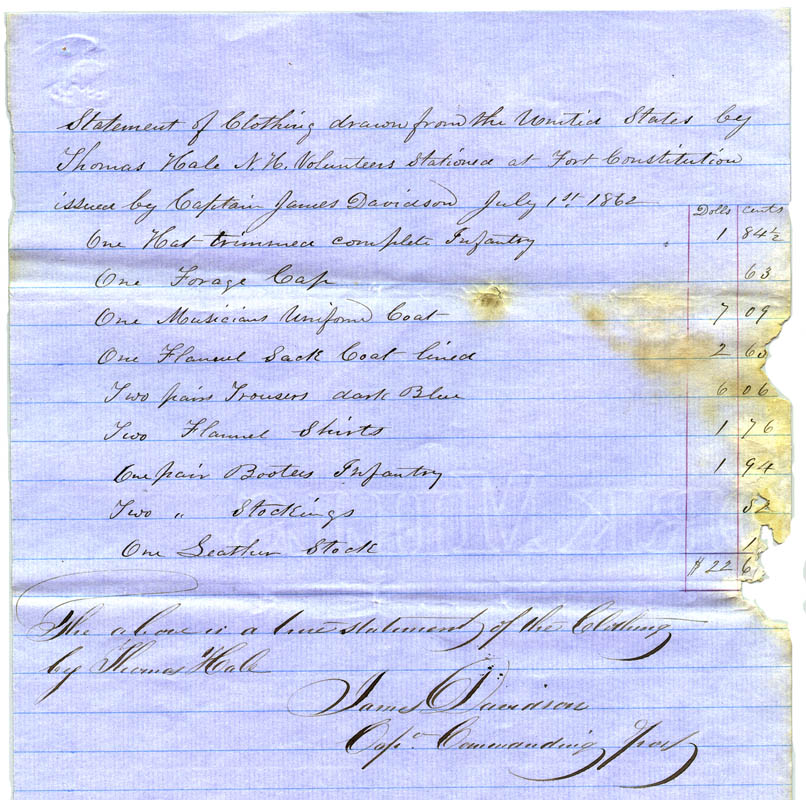 Statement of Clothing drawn from the United States by
Thomas Hale N.H. Volunteers Stationed at Fort Constitution
issued by Captain James Davidson July 1st 1862
Dolls cents
One Hat trimmed complete Infantry 1 84½
One Forage Cap 63
One Musicians Uniform Coat 7 09
One Flannel Sack Coat lined 2 60
Two pairs Trousers dark Blue 6 06
Two Flannel Shirts 1 76
One pair Bootees Infantry 1 94
Two " Stockings 52
One Leather Stock 1
$ 22 6
The above is a true statement of the Clothing
by Thomas Hale
James Davidson
Capt Commanding Post